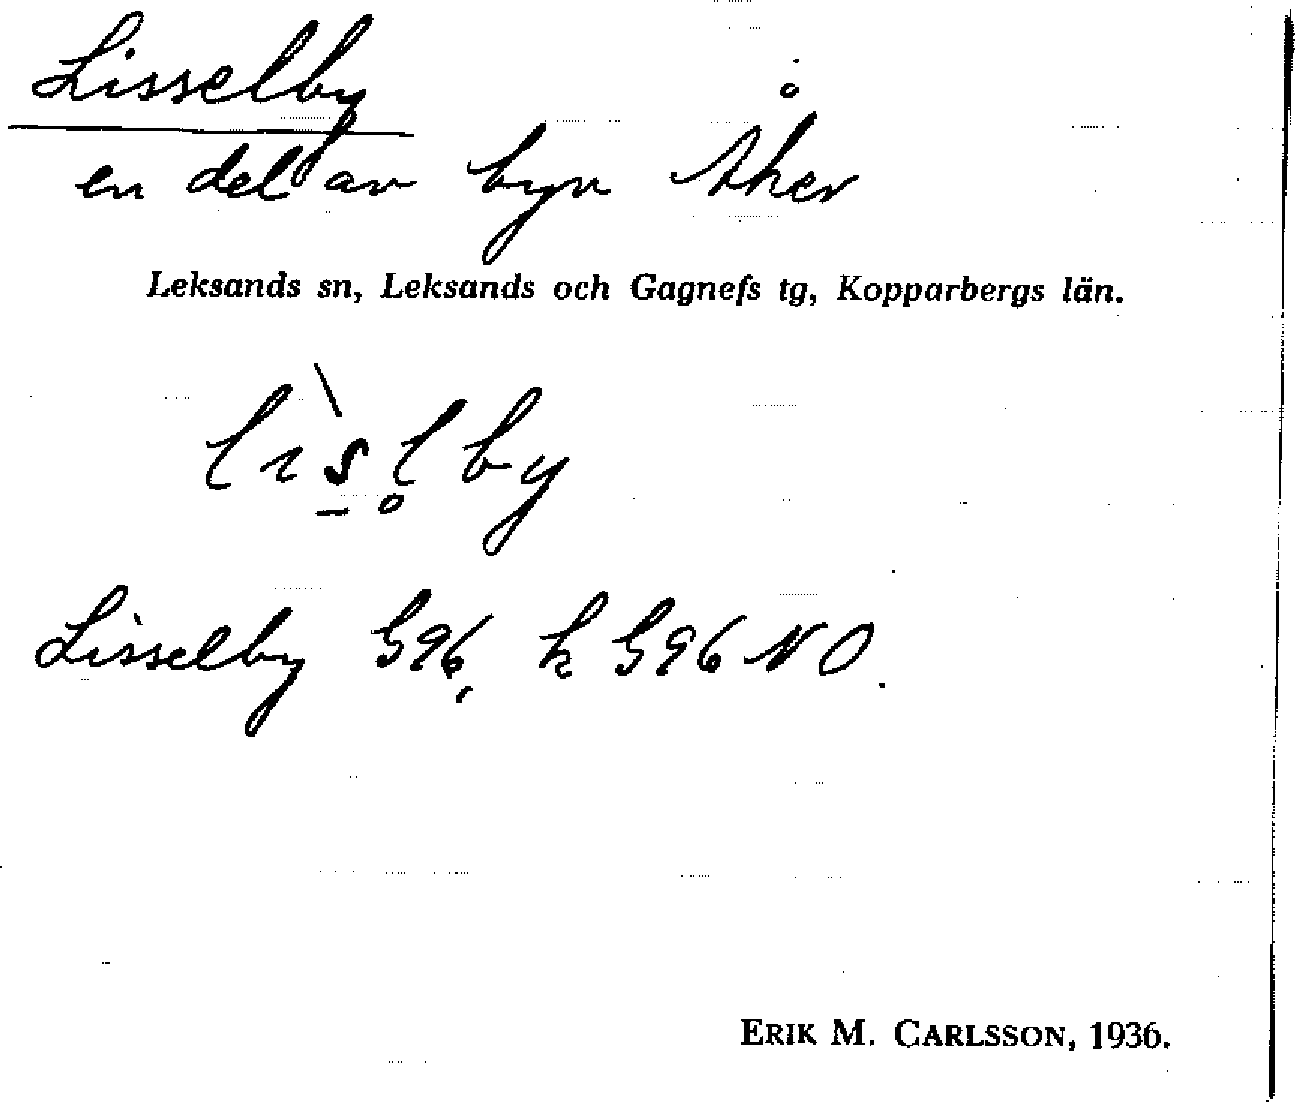 Lisselby
en del av byn Åker
Leksands sn, Leksands och Gagnefs tg, Kopparbergs län.
lìs̠l̥by
Lisselby G96, k G96 NO.
ERIK M. CARLSSON, 1936.